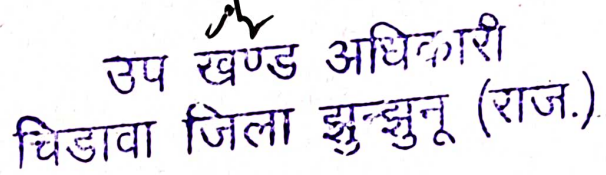 उप खण्ड अधिकारी
चिडावा जिला झुन्झुनू (राज.)